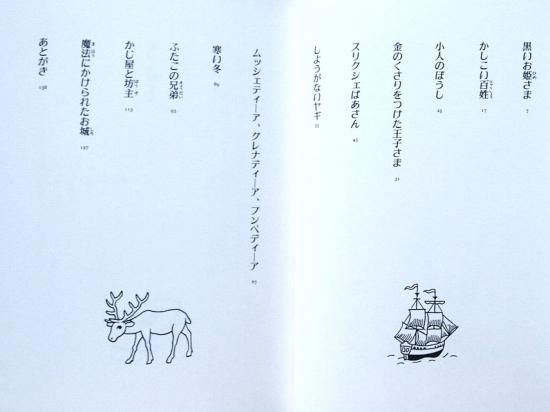 黒いお姫さま 7
かしこい百姓 17
小人のぼうし 25
金のくさりをつけた王子さま 31
スリクシェばあさん 45
しようがないヤギ 55
ムッシェティーア、グレナティーア、フンペティーア 65
寒い冬 84
ふたごの兄弟 92
かじ屋と坊主 113
魔法にかけられたお城 127
あとがき 138